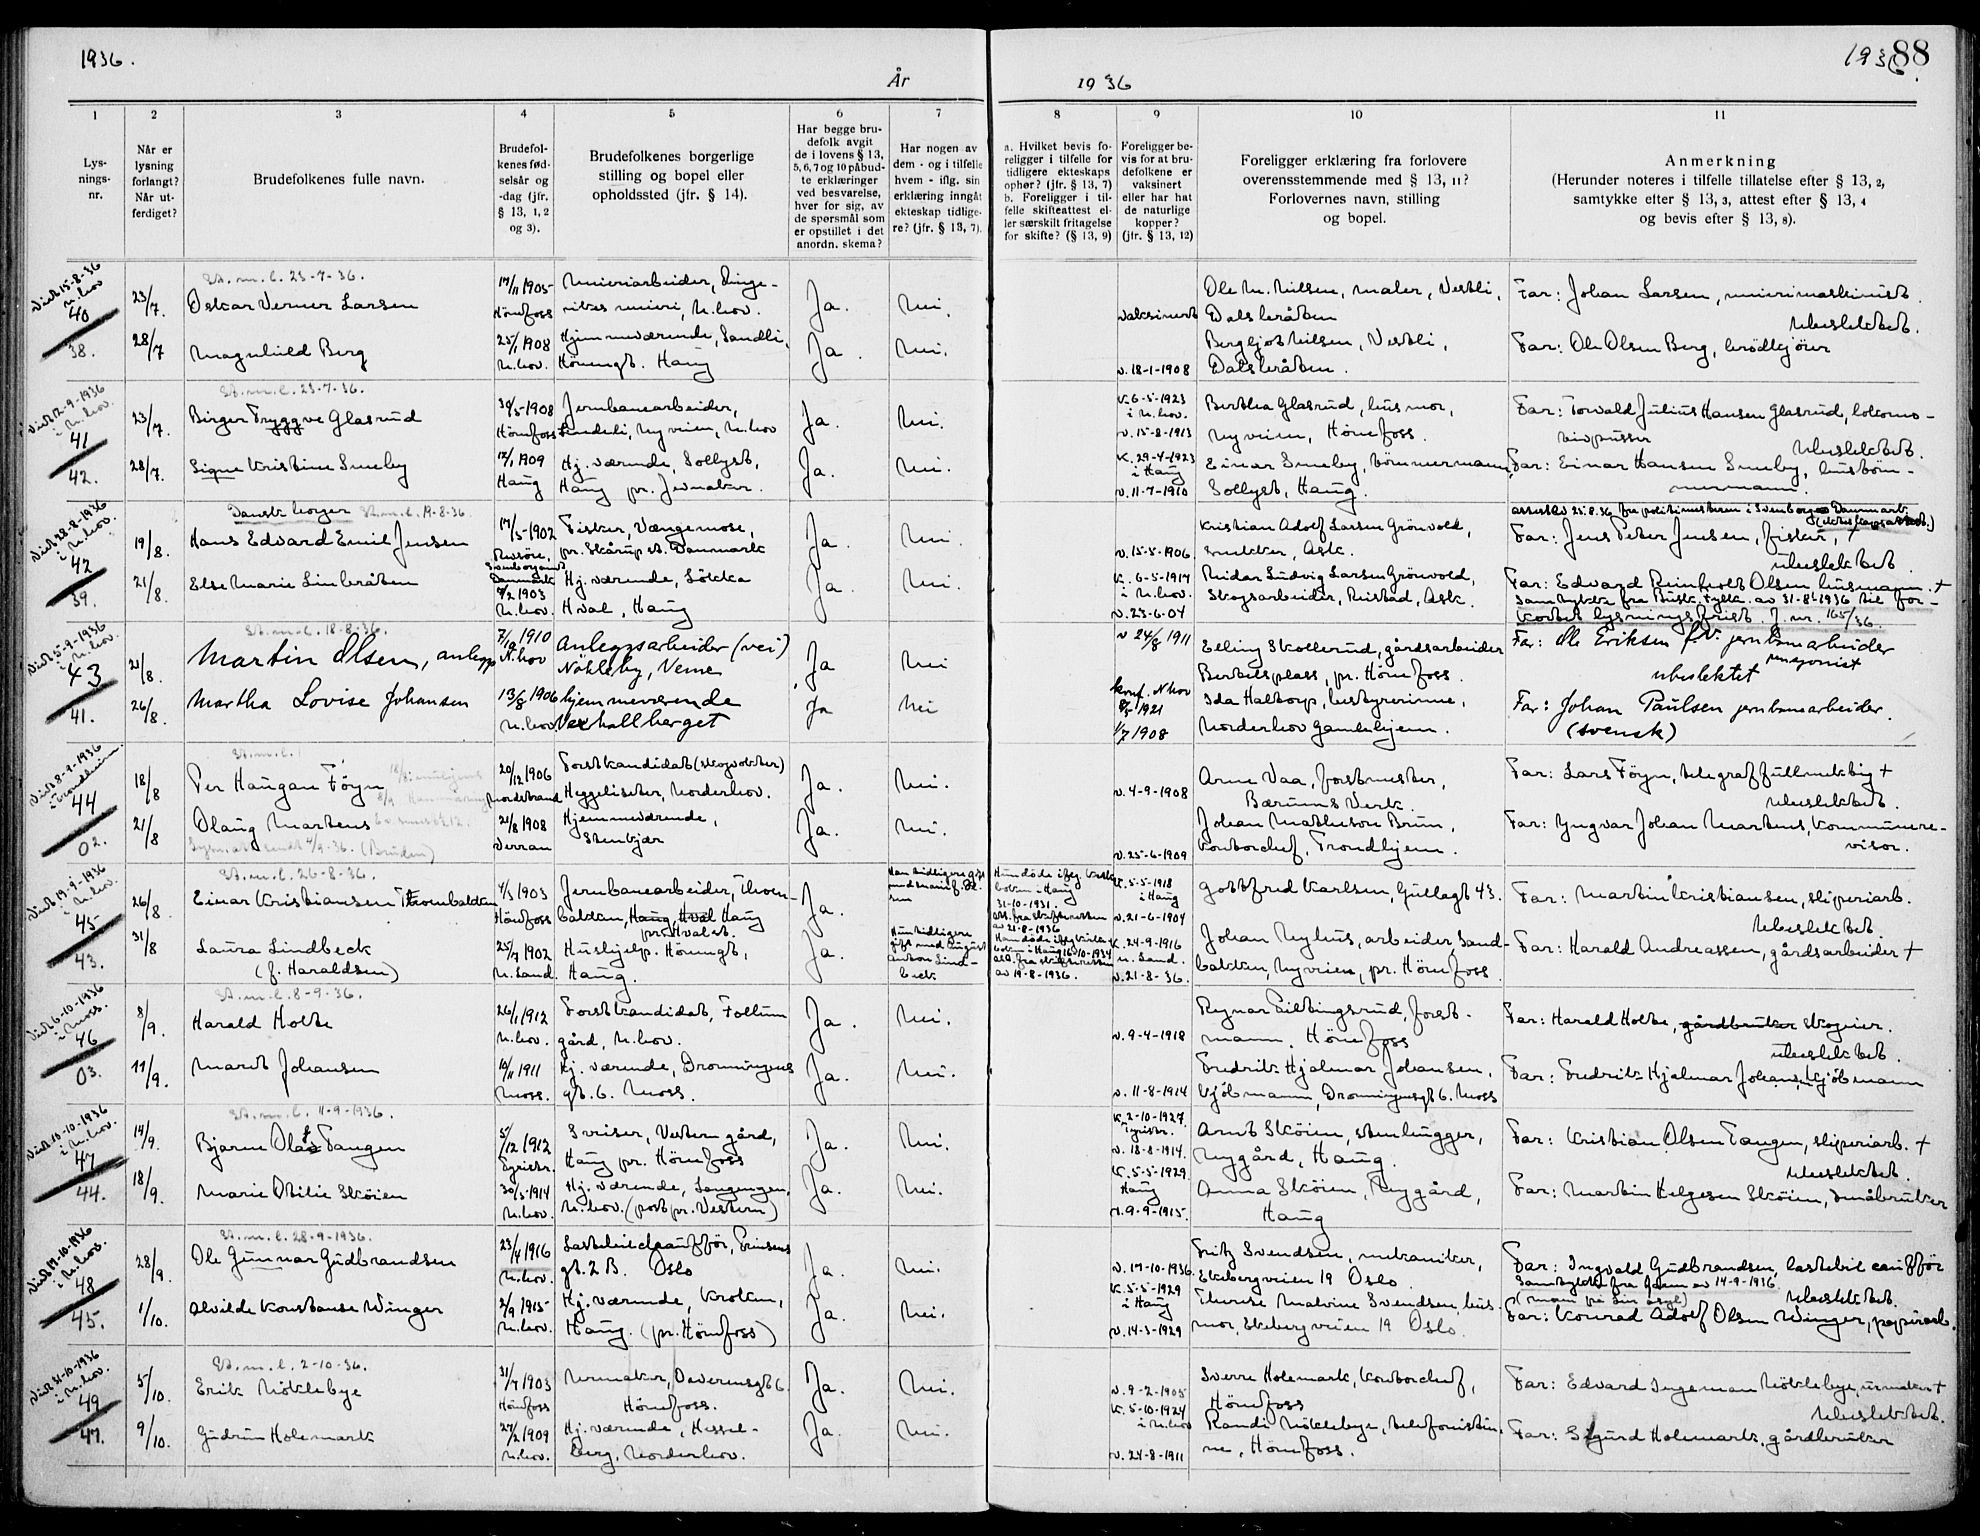 1936.
År
1936
1936.
88
1
Lys-
nings-
nr.
2
Når er
lysning
forlangt?
Når ut-
ferdiget?
3
Brudefolkenes fulle navn.
4
Brudefol-
kenes fød-
selsår og
-dag (jfr.
§ 13, 1, 2
og 3).
5
Brudefolkenes borgerlige
stilling og bopel eller
opholdssted (jfr. § 14).
6
Har begge bru-
defolk avgit
de i lovens § 13,
5, 6, 7 og 10 påbud-
te erklæringer
ved besvarelse,
hver for sig, av
de spørsmål som
er opstillet i det
anordn. skema?
7
Har nogen av
dem - og i tilfelle
hvem - iflg. sin
erklæring inngåt
ekteskap tidlige-
re? (jfr. § 13, 7).
8
a. Hvilket bevis fo-
religger i tilfelle for
tidligere ekteskaps
ophør? (jfr. § 13, 7)
b. Foreligger i til-
felle skifteattest el-
ler særskilt fritagelse
for skifte? (§ 13, 9)
9
Foreligger be-
vis for at bru-
defolkene er
vaksinert
eller har hat
de naturlige
kopper?
(jfr. § 13, 12)
10
Foreligger erklæring fra forlovere
overensstemmende med § 13, 11?
Forlovernes navn, stilling
og bopel.
11
Anmerkning
(Herunder noteres i tilfelle tillatelse efter § 13, 2,
samtykke efter § 13, 3, attest efter § 13, 4
og bevis efter § 13, 8).
Viet 15-8-36
N.hov
40
38.
23/7.
28/7
St.m.l. 23-7-36.
Oskar Verner Larsen
Magnhild Berg
17/11 1905
Hönefoss
25/1 1908
N.hov.
Meieriarbeider, Ringe-
rikes meieri, N.hov.
Hjemmeværende, Sandli,
Hönengt. Haug
Ja.
Ja.
Nei.
Nei.
vaksinert
v. 18-1-1908
Ole M. Nilsen, maler, Vestli,
Dalsbråten
Bergljot Nilsen, Vestli,
Dalsbråten.
Far: Johan Larsen, meierimaskinist.
Ubeslektet.
Far: Ole Olsen Berg, brödkjörer
Viet 12-9-1936
i N.hov.
41
42.
23/7.
28/7.
St.m.l. 23-7-36.
Birger Tryggve Glasrud
Signe Kristine Smeby
30/5-1908
Hönefoss
17/1 1909
Haug
Jernbanearbeider,
Lindeli, Nyveien, N.hov
Hj. værende, Sollyst,
Haug pr. Jevnaker.
Ja.
Ja.
Nei.
Nei.
K. 6-5-1923
i N.hov.
v. 15-8-1913
K. 29-4-1923
i Haug
v. 11-7-1910
Bertha Glasrud, husmor,
Nyveien, Hönefoss.
Einar Smeby, tömmermann,
Sollyst, Haug.
Far: Torvald Julius Hansen Glasrud, lokomo-
tivpusser
Ubeslektet.
Far: Einar Hansen Smeby, hustöm-
mermann.
Viet 28-8-1936
i N.hov.
42
39.
19/8.
21/8.
Dansk borger St.m.l. 19-8-36.
Hans Edvard Emil Jensen
Else Marie Linbråten
17/5-1902
Danmark
9/2 1903
N.hov.
Fisker, Vængemose,
pr. Skårup st. Danmark
Hj. værende, Lökka
Hval, Haug
Ja.
Ja.
Nei.
Nei.
v. 15-5-1906
K. 6-5-1917
i N.hov.
v. 23-6-04
Kristian Adolf Larsen Grönvold,
snekker, Ask.
Reidar Ludvig Larsen Grönvold,
Skogsarbeider, Reistad, Ask.
attest av 25.8.36 fra politimesteren i Svenborg Danmark
Far: Jens Peter Jensen, fisker, †
Ubeslektet.
Far: Edvard Reinholt Olsen husmann. †
Samtykke fra Busk. Fylk. av 31-8-1936 til for-
kortet lysningsfrist. J. nr. 165/36.
Viet 5-9-1936
i N.hov.
43
41.
21/8.
26/8.
St.m.l. 18-8-36.
Martin Olsen, anlegg
Martha Lovise Johansen
7/10 1910
N.hov
13/6 1906
N.hov.
Anleggsarbeider (vei)
Nökleby, Veme
hjemmeverende
Vexhallberget
Ja
Ja
Nei
Nei
v 24/8 1911
konf. N.hov
8/5 1921
1/7 1908
Elling Skollerud, gårdsarbeider
Bertelsplass, pr. Hönefoss.
Ida Haltorp, bestyrerinne,
Norderhov gamlehjem.
Far: Ole Eriksen f.v. jernbanearbeider
pensjonist
ubeslektet
Far: Johan Paulsen jernbanearbeider.
(svensk)
Viet 8-9-1936
i Trondheim.
44
02.
18/8
21/8
St.m.l.
Per Haugan Föyn
Olaug Martens
(Bruden)
20/12 1906
Nordstrand
21/8 1908
Verran
Forstkandidat (skogvokter)
Heggelisæter, Norderhov.
Hjemmeværende,
Stenkjær
Ja.
Ja.
Nei.
Nei.
v. 4-9-1908
v. 25-6-1909
Arne Vaa, forstmester,
Bærums Verk.
Johan Mathieson Brun,
kontorchef, Trondhjem.
Far: Lars Föyn, telegraffullmektig †
Ubeslektet.
Far: Yngvar Johan Martens, kommunere-
visor.
Viet 19-9-1936
i N.hov.
45
43.
26/8
31/8
St.m.l. 26-8-36.
Einar Kristiansen Thorenbakken
Laura Lindbeck
(f. Haraldsen)
4/3 1903
Hönefoss
25/7 1902
N. Land
Jernbanearbeider, Thoren-
bakken, Haug, Hval Haug
pr. Hval st.
Hushjelp. Hönengt,
Haug.
Ja.
Ja.
Hun tidligere
gift med August
Anton Lind-
beck
31-10-1931.
av 21-8-1936
av 19-8-1936.
K. 5-5-1918
i Haug
v. 21-6-1904
K. 24-9-1916
N. Land.
v. 21-8-36.
Gottfred Karlsen, Gullagt 43.
Johan Nyhus, arbeider, Sand-
bakken, Nyveien, pr. Hönefoss.
Far: Martin Kristiansen, sliperiarb.
Ubeslektet.
Far: Harald Andreassen, gårdsarbeider †
Viet 6-10-1936
i Moss.
46
03.
8/9.
11/9.
St.m.l. 8-9-36.
Harald Holte
Marit Johansen
26/1 1912
N.hov.
10/11 1911
Moss.
Forstkandidat, Follum
gård, N.hov.
Hj. værende, Dronningens
gt. 6. Moss.
Ja.
Ja.
Nei.
Nei.
v. 9-4-1918
v. 11-8-1914
Reynar Piltingsrud, forst-
mann, Hönefoss
Fredrik Hjalmar Johansen,
kjöbmann, Dronningensgt 6. Moss
Far: Harald Holte, gårdbruker skogeier.
Ubeslektet.
Far: Fredrik Hjalmar Johansen, kjöbmann
Viet 10-10-1936
i N.hov.
47
44.
14/9.
18/9.
St.m.l. 11-9-1936.
Bjarne Olaf Tangen
Marie Otilie Sköien
5/12 1912
Tyristr.
30/3-1914
N.hov.
Sveiser, Vestern gård,
Haug pr. Hönefoss
Hj. værende, Langengen,
N.hov. (post pr. Vestern)
Ja.
Ja.
Nei.
Nei.
K. 2-10-1927.
Tyristr.
v. 18-8-1914.
K. 5-5-1929
Haug
v. 9-9-1915.
Arnt Sköien, stenhugger,
Nygård, Haug.
Anna Sköien, Nygård,
Haug
Far: Kristian Olsen Tangen, sliperiarb. †
Ubeslektet.
Far: Martin Helgesen Sköien, småbruker
Viet 17-10-1936
i N.hov.
48
45.
28/9.
1/10.
St.m.l. 28-9-1936.
Ole Gunnar Gudbrandsen
Alvilde Konstanse Winger
23/4 1916
N.hov.
2/9 1915
N.hov.
Lastebilchaufför, Grinsens
gt. 2 B. Oslo
Hj. værende, Kroken,
Haug. (pr. Hönefoss)
Ja.
Ja.
Nei.
Nei.
v. 17-10-1936.
K. 5-5-1929
i Haug
v. 14-3-1929
Fritz Svendsen, mekaniker,
Ekebergveien 19 Oslo.
Therese Malvine Svendsen, hus-
mor, Ekebergveien 19 Oslo.
Far: Ingvald Gudbrandsen, lastebilchaufför
Samtykke fra faren av 14-9-1936
Ubeslektet.
Far: Konrad Adolf Olsen Winger, papirarb.
Viet 31-10-1936
i N.hov.
49
47.
5/10.
9/10.
St.m.l. 2-10-36.
Erik Nöklebye
Gudrun Holemark
31/7 1903
Hönefoss
27/2 1909
N.hov.
Urmaker, Oevrensgt 6
Hönefoss.
Hj. værende, Hessel-
berg, Norderhov.
Ja.
Ja.
Nei.
Nei.
v. 9-2-1905
K. 5-10-1924
i N.hov
v. 24-8-1911
Sverre Holemark, kontorchef,
Hönefoss
Randi Nöklebye, telefonistin-
ne, Hönefoss.
Far: Edvard Ingeman Nöklebye, urmaker †
Ubeslektet.
Far: Sigurd Holemark, gårdbruker